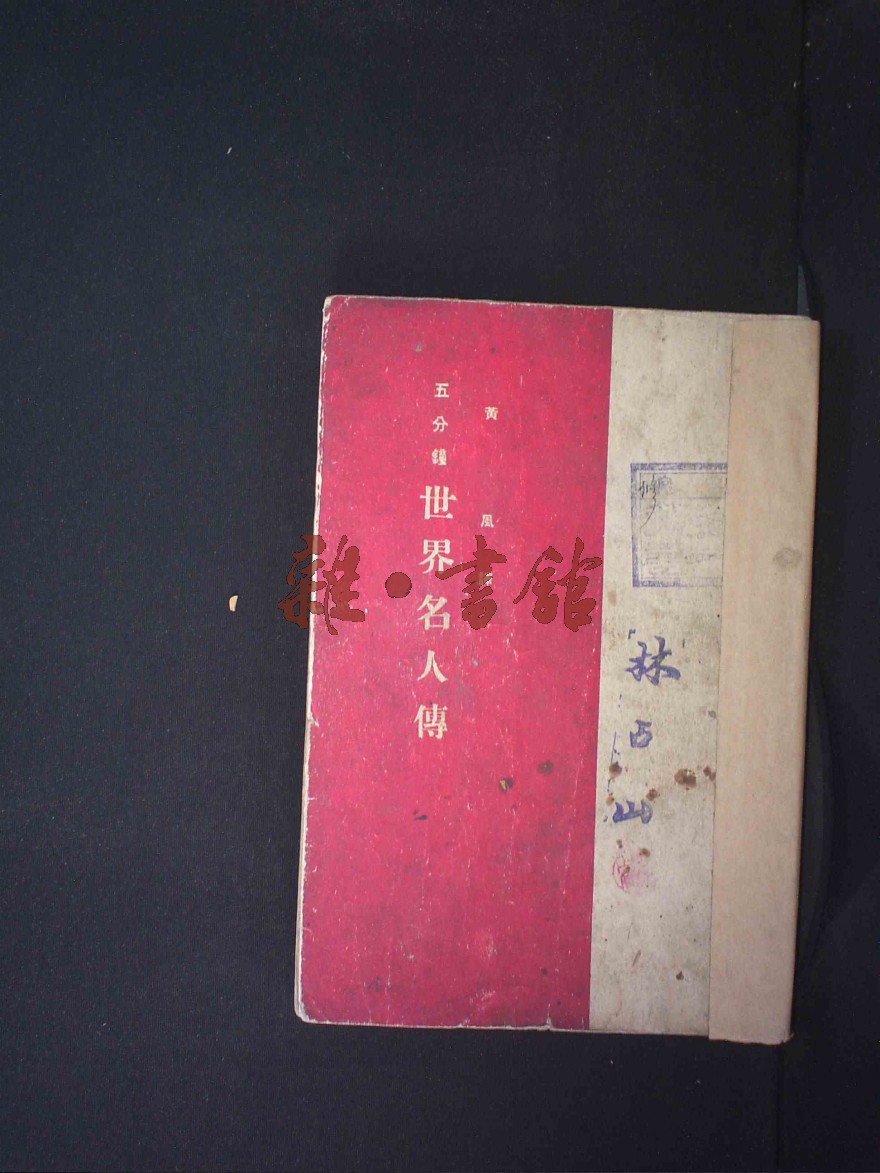 黃風
五分鐘世界名人傳
雜·書館
林占山